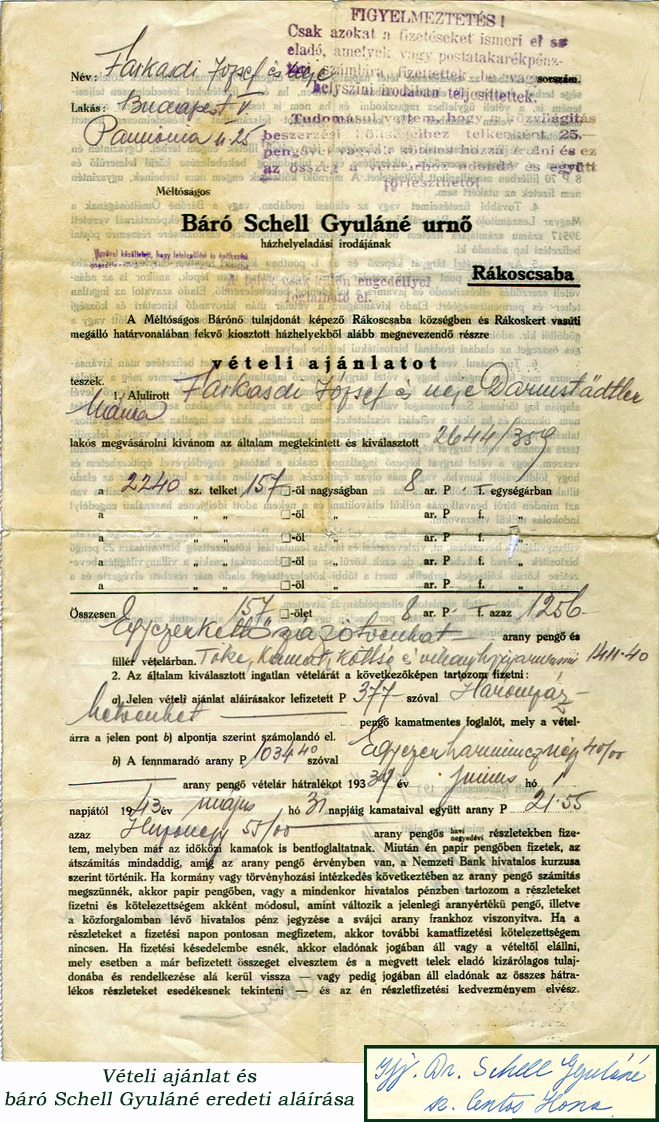 FIGYELMEZTETÉS !
Csak azokat a fizetéseket ismeri el
eladó, amelyek vagy postatakarékpénz-
tári számlára fizettettek be vagy
helyszini irodában teljesittettek.
Név : Farkasdi József és neje
sorszám.
Lakás : Budapest V
Pannónia u 25
Tudomásul vettem, hogy a közvilágitás
beszerzési költségeihez telkenként 25.—
pengővel vagyok köteles hozzájárulni és ez
az összeg a vételárhoz adandó és együtt
törleszthető!
Méltóságos
Báró Schell Gyuláné urnő
házhelyeladási irodájának
hogy letelepülési és építkezési
Rákoscsaba
A telek csak külön engedéllyel
foglalható el.
A Méltóságos Bárónő tulajdonát képező Rákoscsaba községben és Rákoskert vasúti
megálló határvonalában fekvő kiosztott házhelyekből alább megnevezendő részre
vételi ajánlatot
teszek.
1. Alulirott Farkasdi József és neje Darmstädtler
Mária
lakós megvásárolni kivánom az általam megtekintett és kiválasztott 2644/359
a 2240 sz. telket 157 □-öl nagyságban 8 ar. P f. egységárban
a „ „ □-öl „ ar. P f. „
a „ „ □-öl „ ar. P f. „
a „ „ □-öl „ ar. P f. „
a „ „ □-öl „ ar. P f. „
Összesen 157 □-ölet 8 ar. P f. azaz 1256
Egyezerkettőszázötvenhat arany pengő és
fillér vételárban. Tőke, Kamat, költség és 1411.40
2. Az általam kiválasztott ingatlan vételárát a következőképen tartozom fizetni :
a) Jelen vételi ajánlat aláirásakor lefizetett P 377 szóval Háromszáz
hetvenhet pengő kamatmentes foglalót, mely a vétel-
árra a jelen pont b) alpontja szerint számolandó el.
b) A fennmaradó arany P 1034 40 szóval Egyezerharmincznégy 40/00
arany pengő vételár hátralékot 1939 év junius hó 1
napjától 1943 év május hó 31 napjáig kamataival együtt arany P 21.55
azaz Huszonegy 55/00 arany pengős havi negyedévi részletekben fize-
tem, melyben már az időközi kamatok is bentfoglaltatnak. Miután én papír pengőben fizetek, az
átszámitás mindaddig, amig az arany pengő érvényben van, a Nemzeti Bank hivatalos kurzusa
szerint történik. Ha kormány vagy törvényhozási intézkedés következtében az arany pengő számitás
megszünnék, akkor papir pengőben, vagy a mindenkor hivatalos pénzben tartozom a részleteket
fizetni és kötelezettségem akként módosul, amint változik a jelenlegi aranyértékű pengő, illetve
a közforgalomban lévő hivatalos pénz jegyzése a svájci arany frankhoz viszonyitva. Ha a
részleteket a fizetési napon pontosan megfizetem, akkor további kamatfizetési kötelezettségem
nincsen. Ha fizetési késedelembe esnék, akkor eladónak jogában áll vagy a vételtől elállni,
mely esetben a már befizetett összeget elvesztem és a megvett telek eladó kizárólagos tulaj-
donába és rendelkezése alá kerül vissza — vagy pedig jogában áll eladónak az összes hátra-
lékos részleteket esedékesnek tekinteni — és az én részletfizetési kedvezményem elvész.
Vételi ajánlat és
báró Schell Gyuláné eredeti aláírása
Ifj. Dr. Schell Gyuláné
sz. Ilona